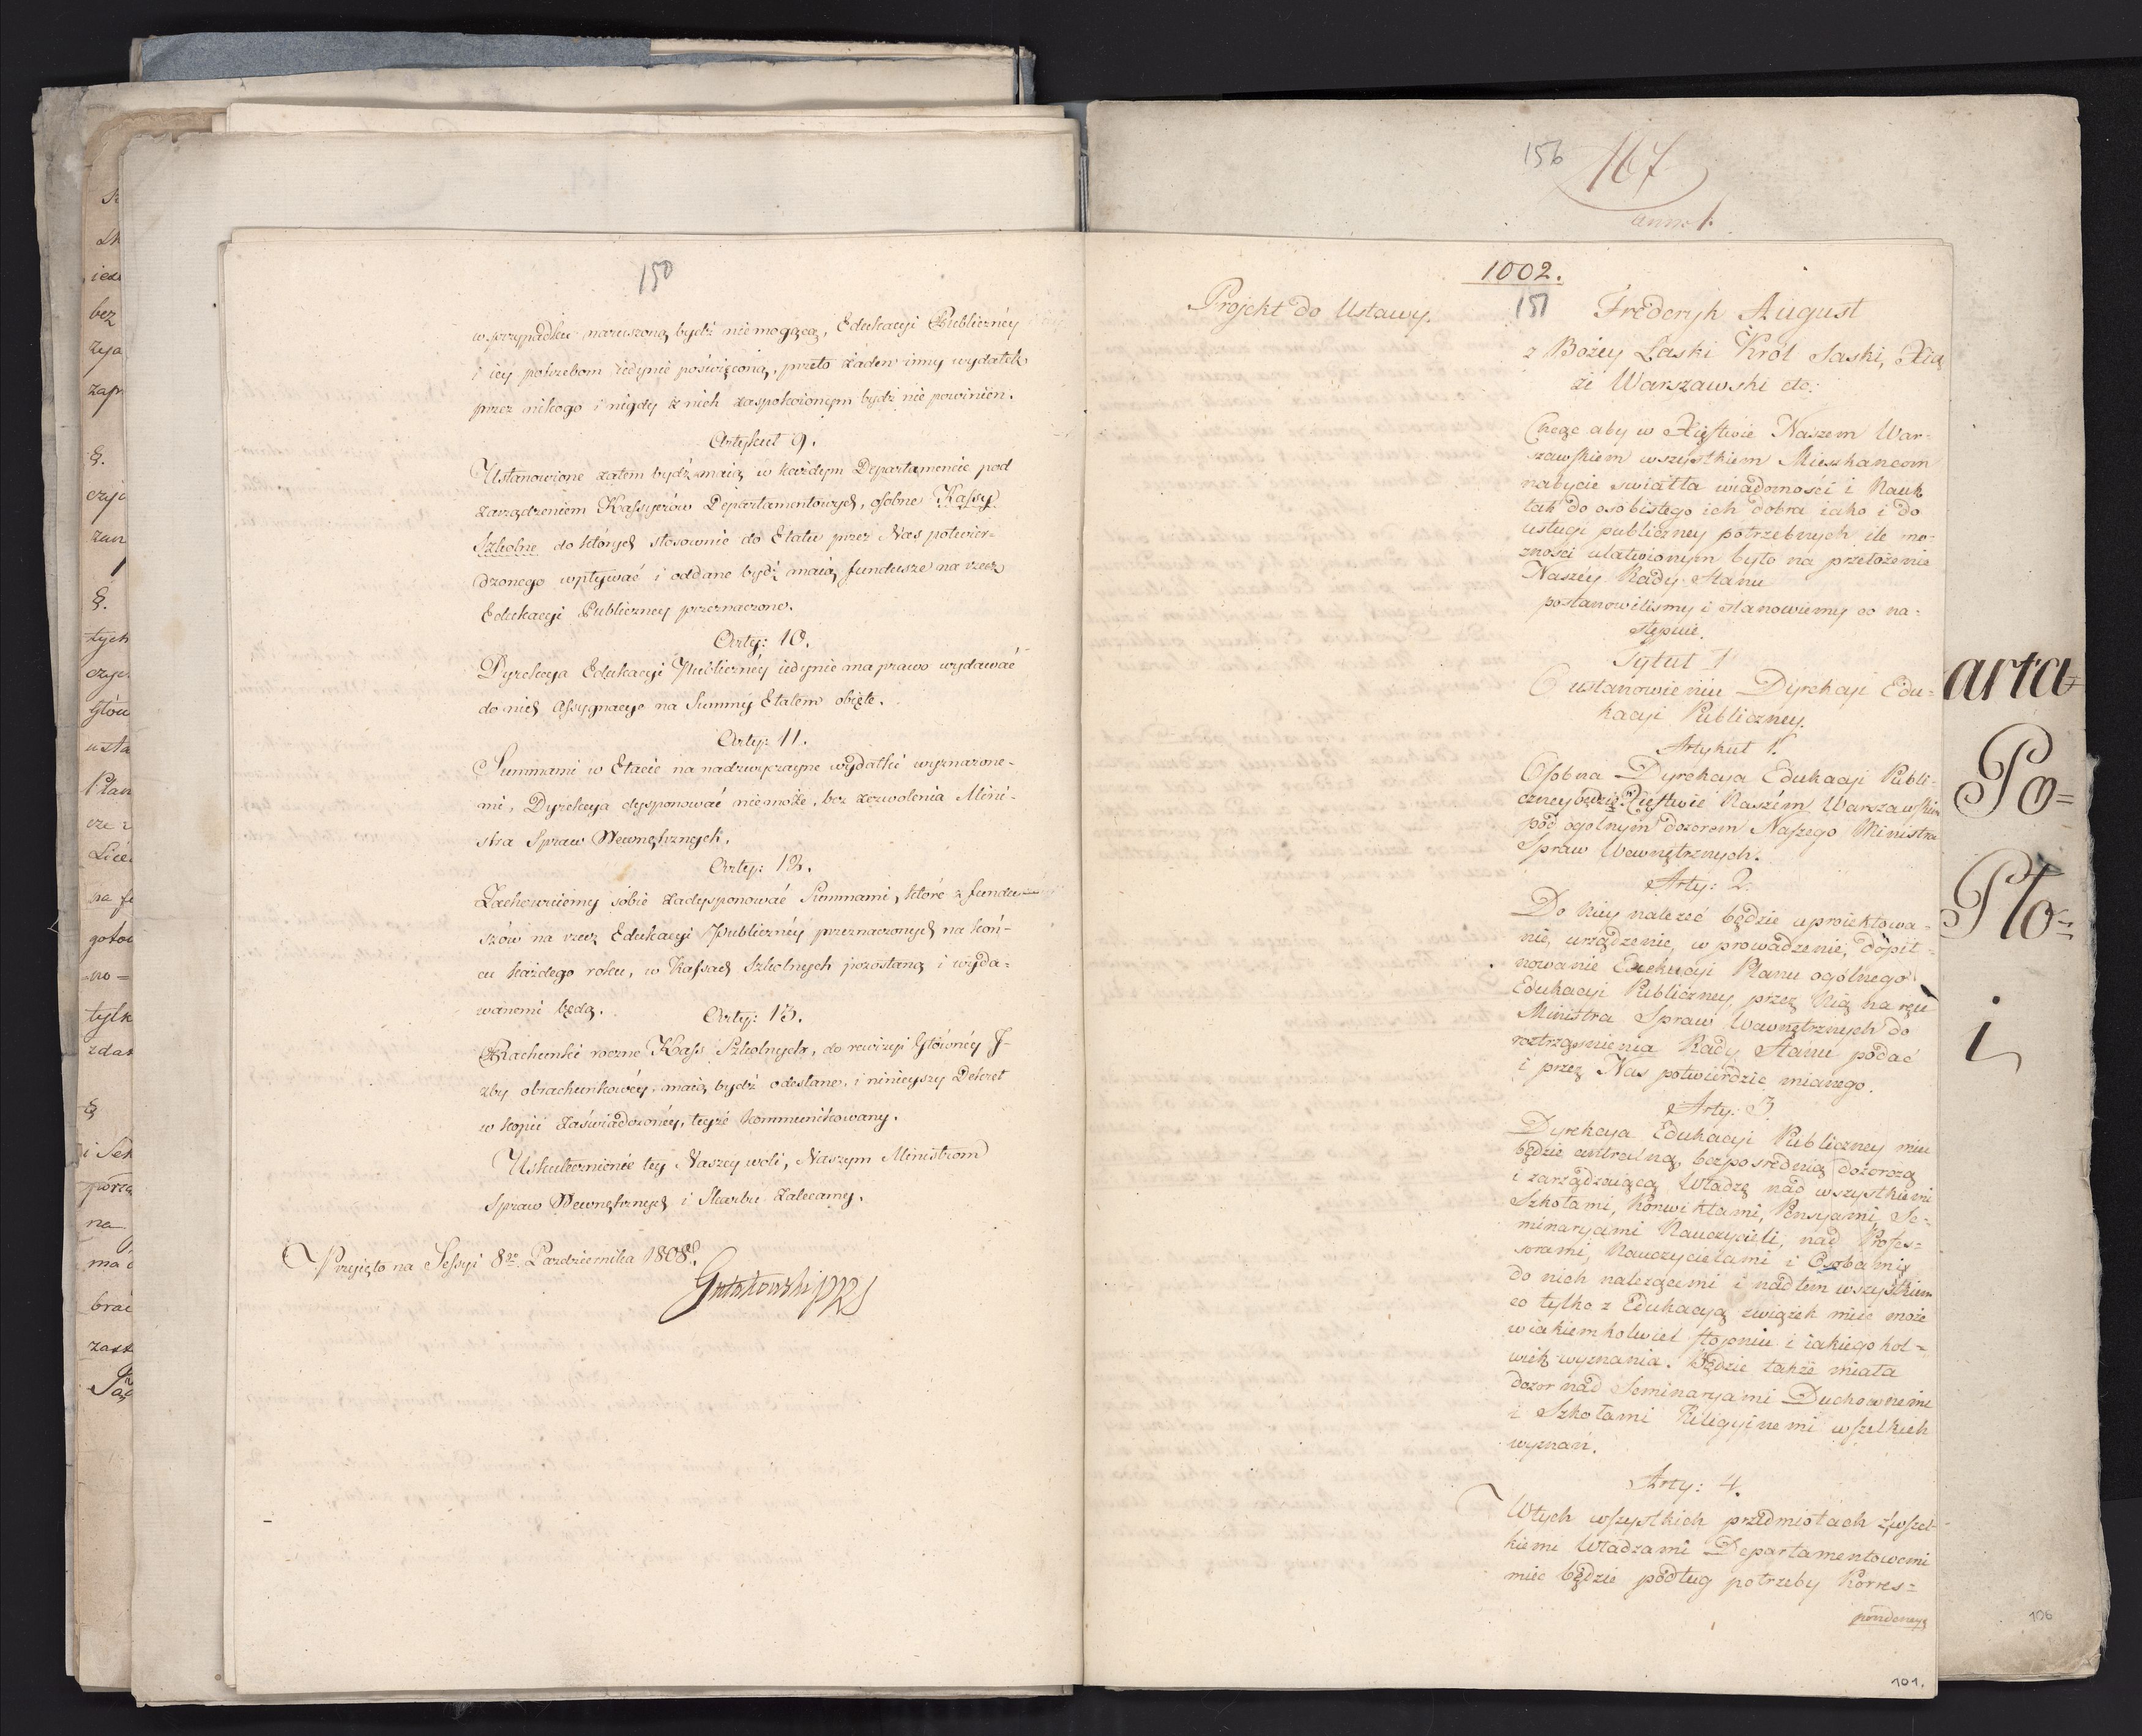 150
w przypadku naruszoną bydź niemogącą, Edukacyi Publiczney
i iey potrzebom iedynie poświęconą, przeto żaden inny wydatek
przez nikogo i nigdy z nich zaspokoionym bydź nie powinien.
Artykuł 9.
Ustanowione zatem bydź maią w każdym Departamencie pod
zarządzeniem Kassyerów Departamentowych, osobne Kassy
Szkolne do których stosownie do Etatu przez Nas potwier-
dzonego wpływać i oddane bydź maią fundusze na rzecz
Edukacyi Publiczney przeznaczone.
Arty: 10.
Dyrekcya Edukacyi Publiczney iedynie ma prawo wydawać
do nich Assygnacye na Summy Etatem obięte.
Arty: 11.
Summami w Etacie na nadzwyczayne wydatki wyznaczone-
mi, Dyrekcya dysponować nie może, bez zezwolenia Mini-
stra Spraw Wewnętrznych.
Arty: 12.
Zachowuiemy sobie zadysponować Summami, które z fundu-
szów na rzecz Edukacyi Publiczney przeznaczonych na koń-
cu każdego roku, w Kassach Szkolnych pozostaną i wyda-
wanemi będą.
Arty: 13.
Rachunki roczne Kass Szkolnych, do rewizyi Główney I-
zby obrachunkowey, maią bydź odesłane, i ninieyszy Dekret
w kopii zaświadczoney, teyże kommunikowany.
Uskutecznienie tey Naszey woli, Naszym Ministrom
Spraw Wewnętrznych i Skarbu zalecamy.
Przyięto na Sessyi 8 Pazdziernika 1808
Gutakowski PRS
156
167
1002.
151
Projekt do Ustawy.
Fréderyk August
z Bożey Łaski Król Saski, Xią
że Warszawski etc:
Chcąc aby w Xięstwie Naszem War-
szawskiem wszystkiem Mieszkancom
nabycie swiatła wiadomości i Nauk
tak do osobistego ich dobra iako i do
usługi publiczney potrzebnych, ile mo-
zności ułatwionym było na przełożenie
Naszéy Rady Stanu
postanowilismy i stanowiemy co na-
stępuie.
Tytuł 1
O ustanowieniu Dyrekcyi Edu-
kacyi Publiczney.
Artykuł 1.
Osobna Dyrekcya Edukacyi Publi-
czney będzie w Xięstwie Naszém Warszawskiem
pod ogolnym dozorem Naszego Ministra
Spraw Wewnętrznych.
Arty: 2.
Do Niey nalezeć będzie uproiektowa-
nie, urządzenie, wprowadzenie, dopil-
nowanie Exekucyi Planu ogólnego
Edukacyi Publiczney, przez Nią na ręce
Ministra Spraw Wewnętrznych do
roztrząsnienia Rady Stanu podać
i przez Nas potwierdzić mianego.
Arty: 3.
Dyrekcya Edukacyi Publiczney mieć
będzie centralną, bezposrednią dozorczą
i zarządzaiącą Władzę nad wszystkiemi
Szkołami, Konwiktami, Pensyami, Se-
minaryami Nauczycieli, nad Profes-
sorami, Nauczycielami i Osobami
do nich nalezącemi i nad tem wszystkiem
co tylko z Edukacyą związek mieć może
w iakiemkolwiek stopniu i iakiego kol-
wiek wyznania. Będzie także miała
dozor nad Seminaryami Duchownemi
i Szkołami Religyinemi wszelkich
wyznań.
Arty: 4.
Wtych wszystkich przedmiotach z wszel-
kiemi Władzami Departamentowemi
mieć będzie podług potrzeby Korres-
pondencyą
101.
arta
Po=
Pło=
i
106